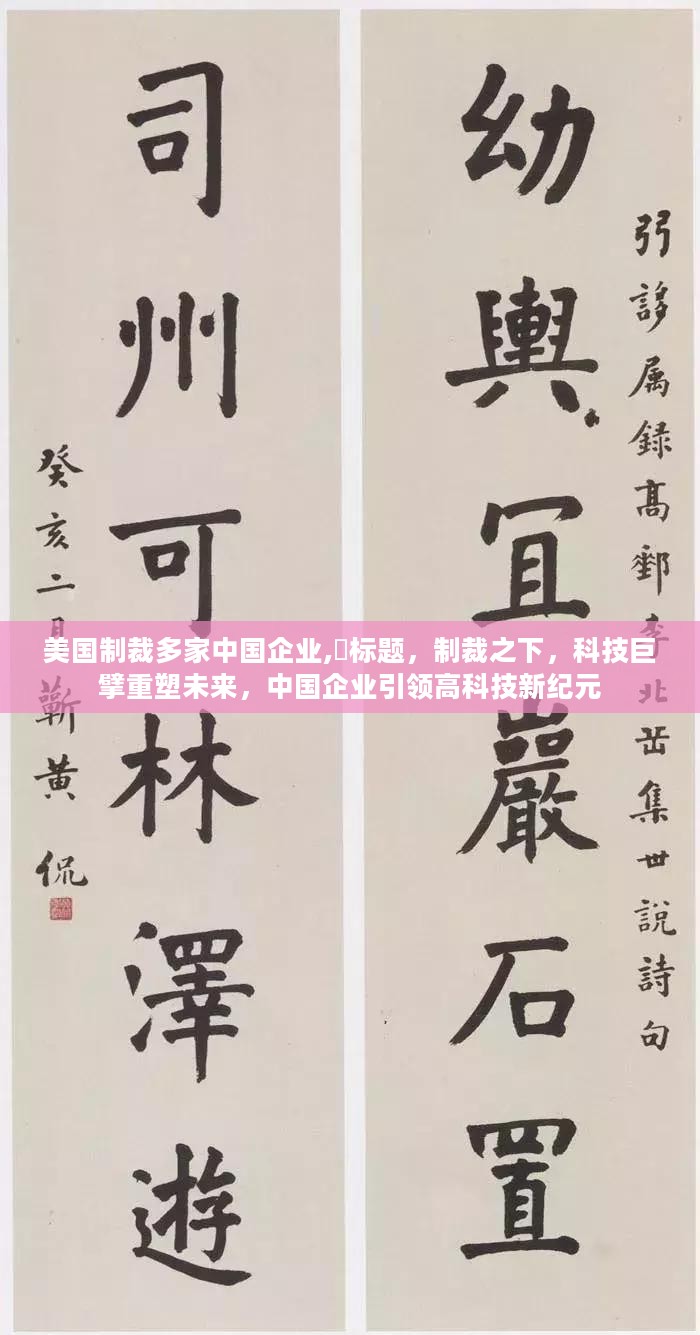 弜誃属録髙郵李北集世說詩句
幼輿冝巖石置
司州可林澤遊
癸亥二月蘄黄侃
美国制裁多家中国企业,标题，制裁之下，科技巨
擘重塑未来，中国企业引领高科技新纪元